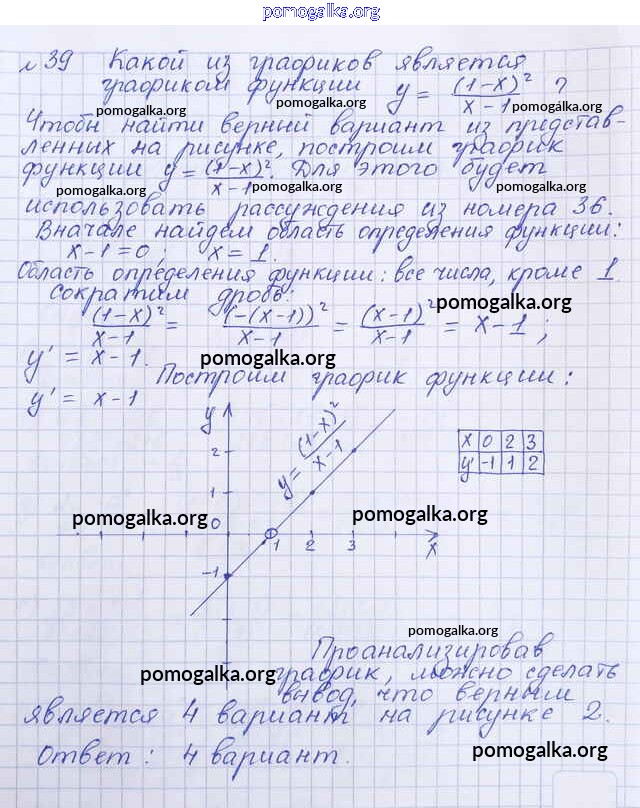 pomogalka.org
№39 Какой из графиков является
графиком функции y = (1-x)² / x-1 ?
pomogalka.org pomogalka.org pomogalka.org
Чтобы найти верный вариант из представ-
ленных на рисунке, построим график
функции y = (1-x)² / x-1. Для этого будет
pomogalka.org pomogalka.org pomogalka.org
использовать рассуждения из номера 36.
Вначале найдем область определения функции:
x-1=0; x=1.
Область определения функции: все числа, кроме 1
сократим дробь:
pomogalka.org
(1-x)² / x-1 = (-(x-1))² / x-1 = (x-1)² / x-1 = x-1;
y' = x-1.
pomogalka.org
Построим график функции:
y' = x-1
y
y = (1-x)² / x-1
x 0 2 3
y' -1 1 2
2
1
pomogalka.org 0 pomogalka.org
1 2 3 x
-1
pomogalka.org
Проанализировав
pomogalka.org график, можно сделать
вывод, что верным
является 4 вариант на рисунке 2.
Ответ: 4 вариант.
pomogalka.org